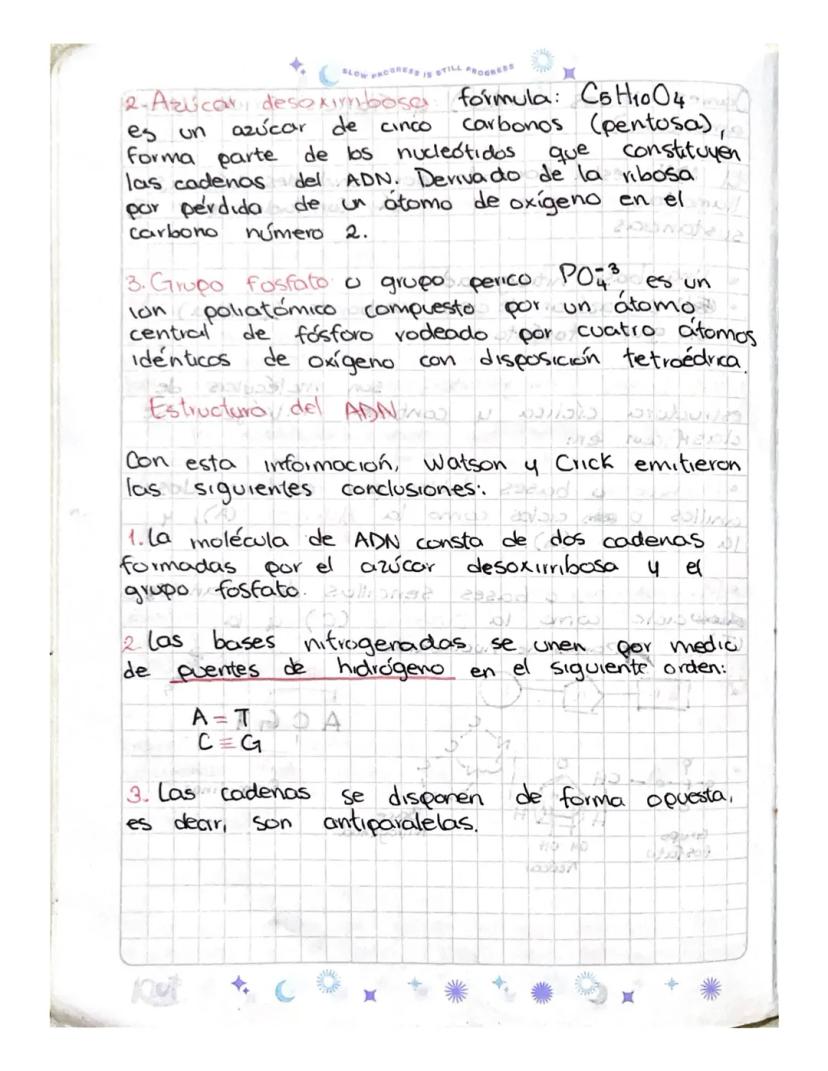 SLOW PROGRESS IS STILL PROGRESS
2-Azúcar, desoxirribosa fórmula: C5H10O4
es un azúcar de cinco carbonos (pentosa),
forma parte de los nucleótidos que constituyen
las cadenas del ADN. Derivado de la ribosa
por pérdida de un átomo de oxígeno en el
carbono número 2.
3. Grupo fosfato o grupo perico PO4-3 es un
ión poliatómico compuesto por un átomo
central de fósforo rodeado por cuatro átomos
idénticos de oxígeno con disposición tetraédrica.
Estructura del ADN
Con esta información, Watson y Crick emitieron
las siguientes conclusiones:.
1. La molécula de ADN consta de dos cadenas
formadas por el azúcar desoxirribosa y el
grupo fosfato.
2 Las bases nitrogenadas se unen por medio
de puentes de hidrógeno en el siguiente orden:
A = T
C ≡ G
3. Las cadenas se disponen de forma opuesta,
es decir, son antiparalelas.